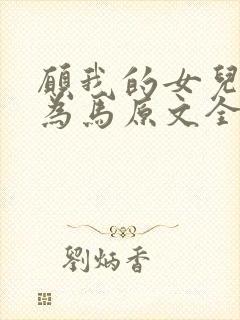 願我的女兒
為馬原文全
劉炳香